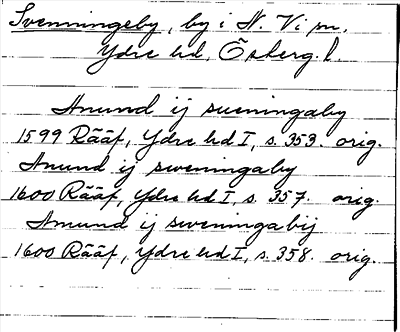 Svenningeby, by i N. Vi sn,
Ydre hd, Österg. l.
Amund ij sueningaby
1599 Rääf, Ydre hd I, s. 353. orig.
Amund ij sweningaby
1600 Rääf, Ydre hd I, s. 357. orig.
Amund ij sweningabij
1600 Rääf, Ydre hd I, s. 358. orig.